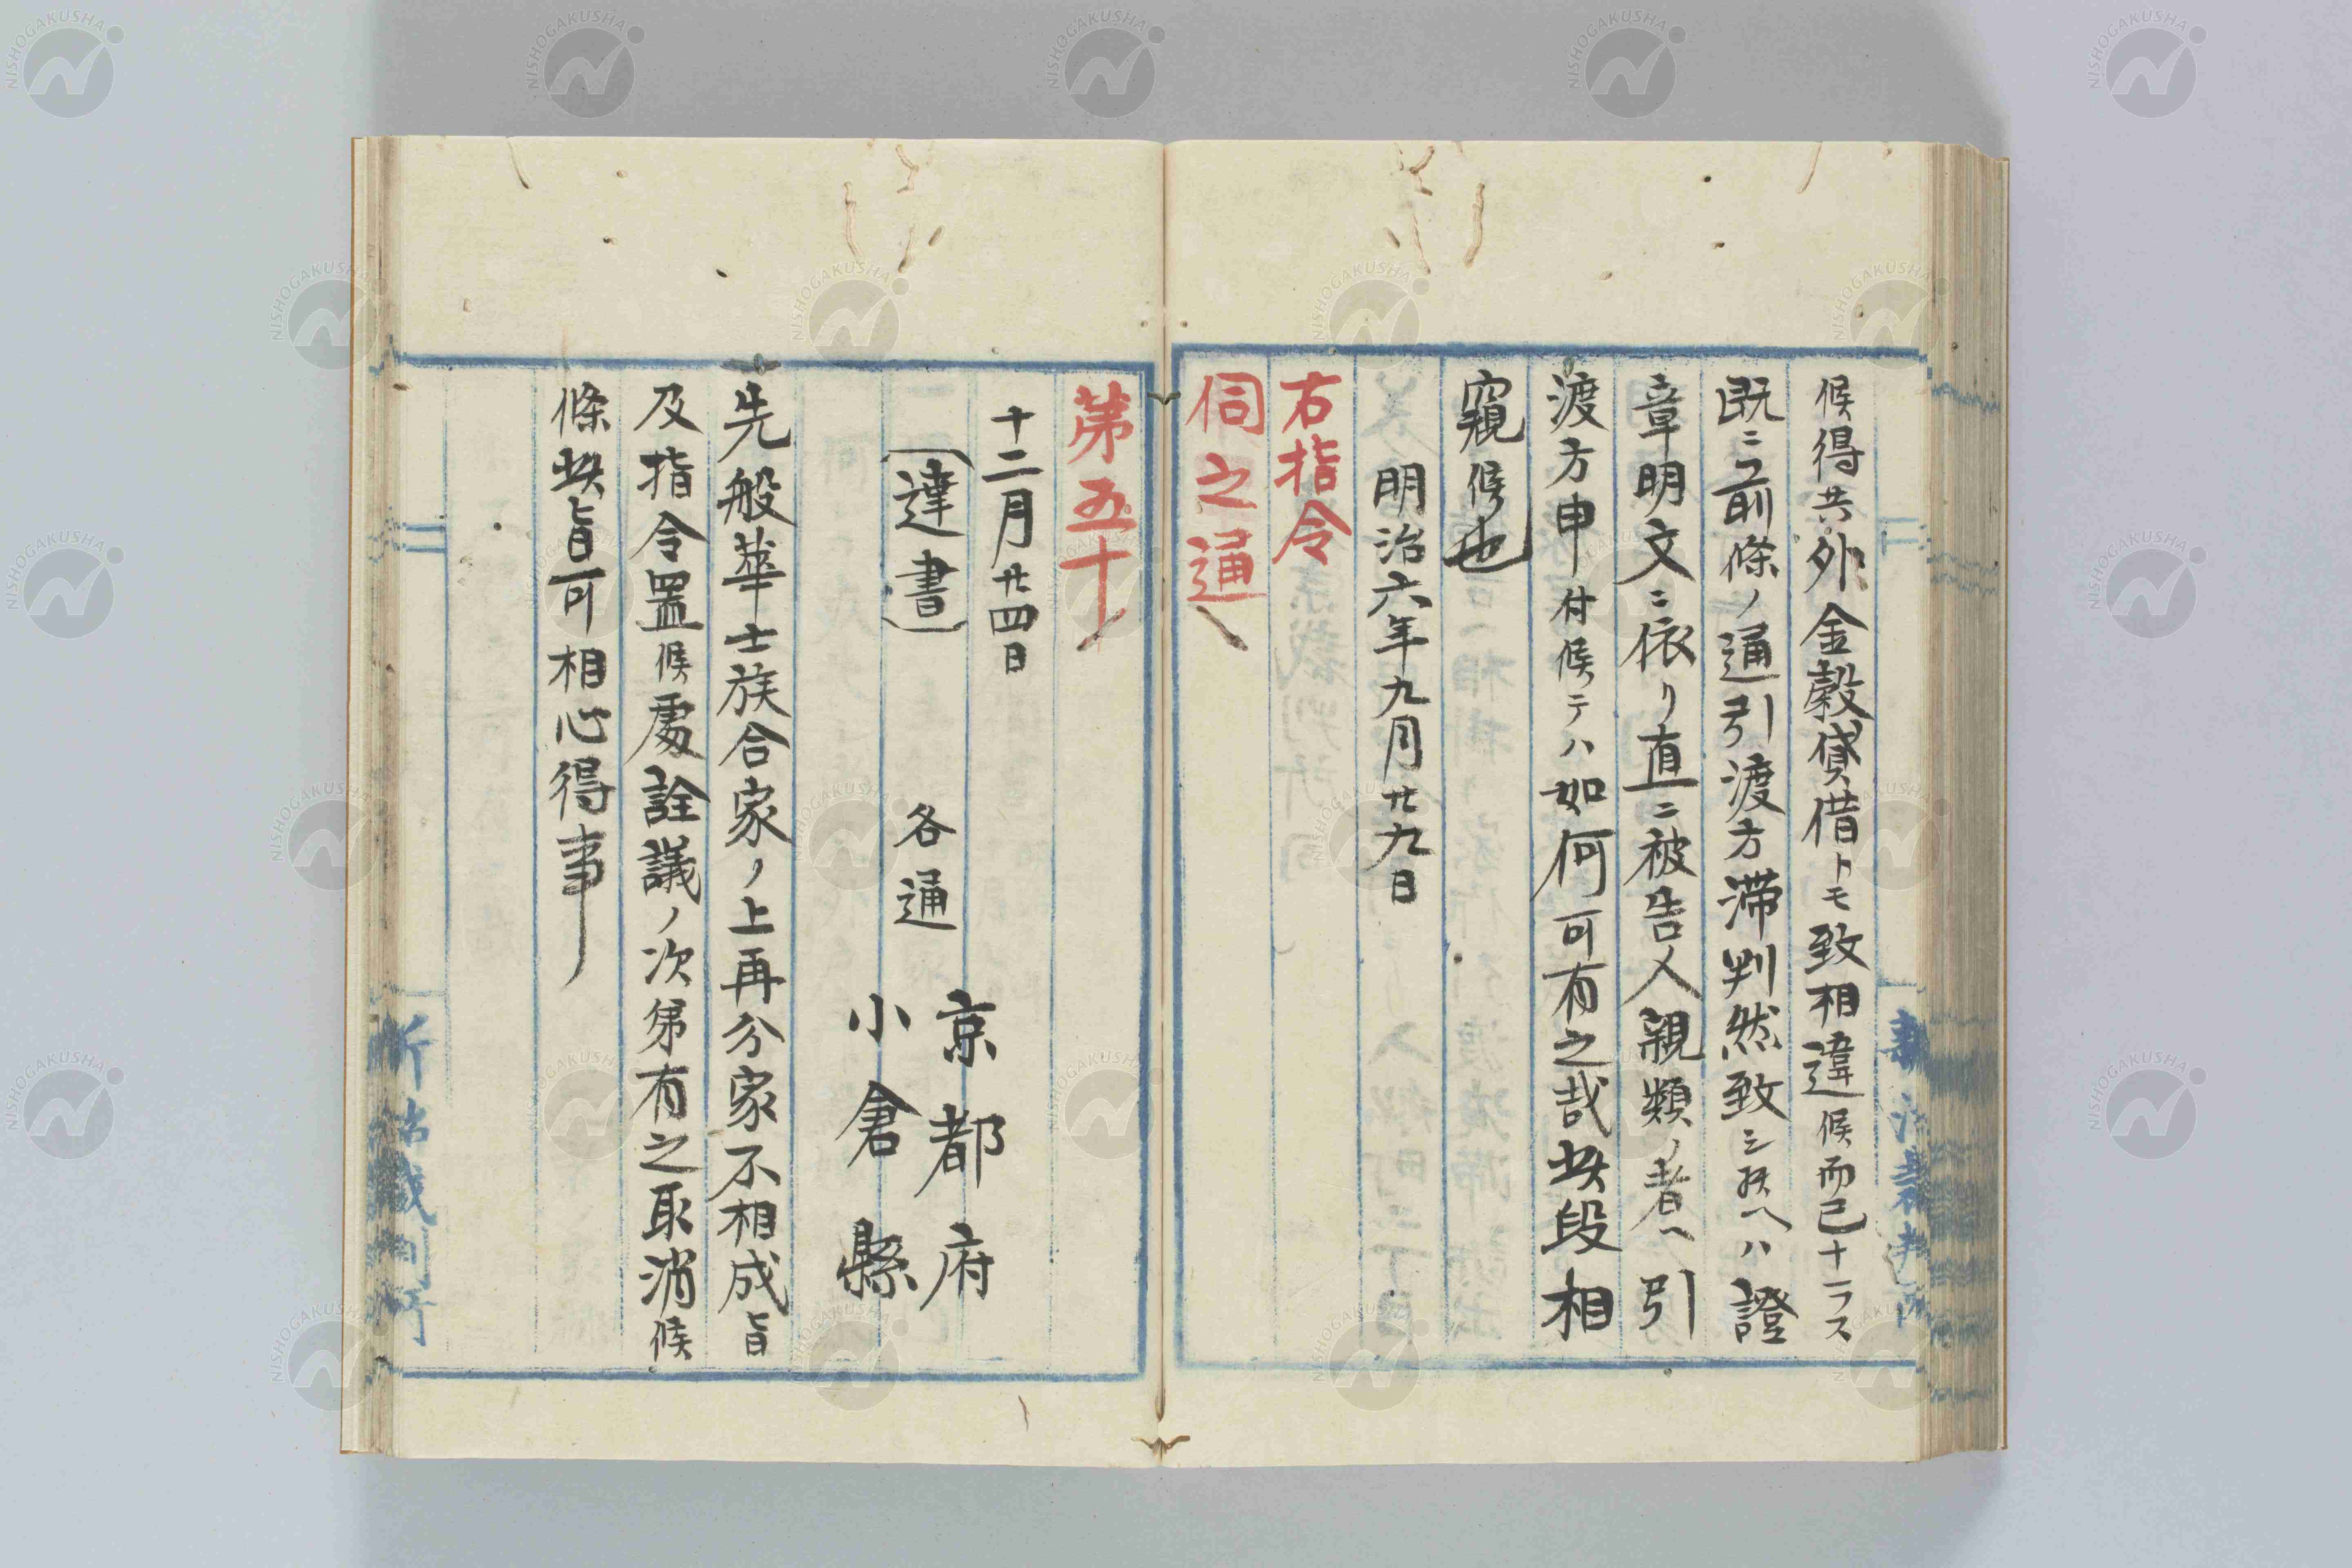 候得共外金穀貸借トモ致相違候而已ナラス
既ニ前條ノ通引渡方滞判然致シ候ヘハ證
章明文ニ依リ直ニ被告人親類ノ者ヘ引
渡方申付候テハ如何可有之哉此段相
窺候也
明治六年九月廿九日
右指令
伺之通
第五十
十二月廿四日
京都府
(達書) 各通
小倉縣
先般華士族合家ノ上再分家不相成旨
及指令置候處詮議ノ次第有之取消候
條此旨可相心得事
NISHOGAKUSHA